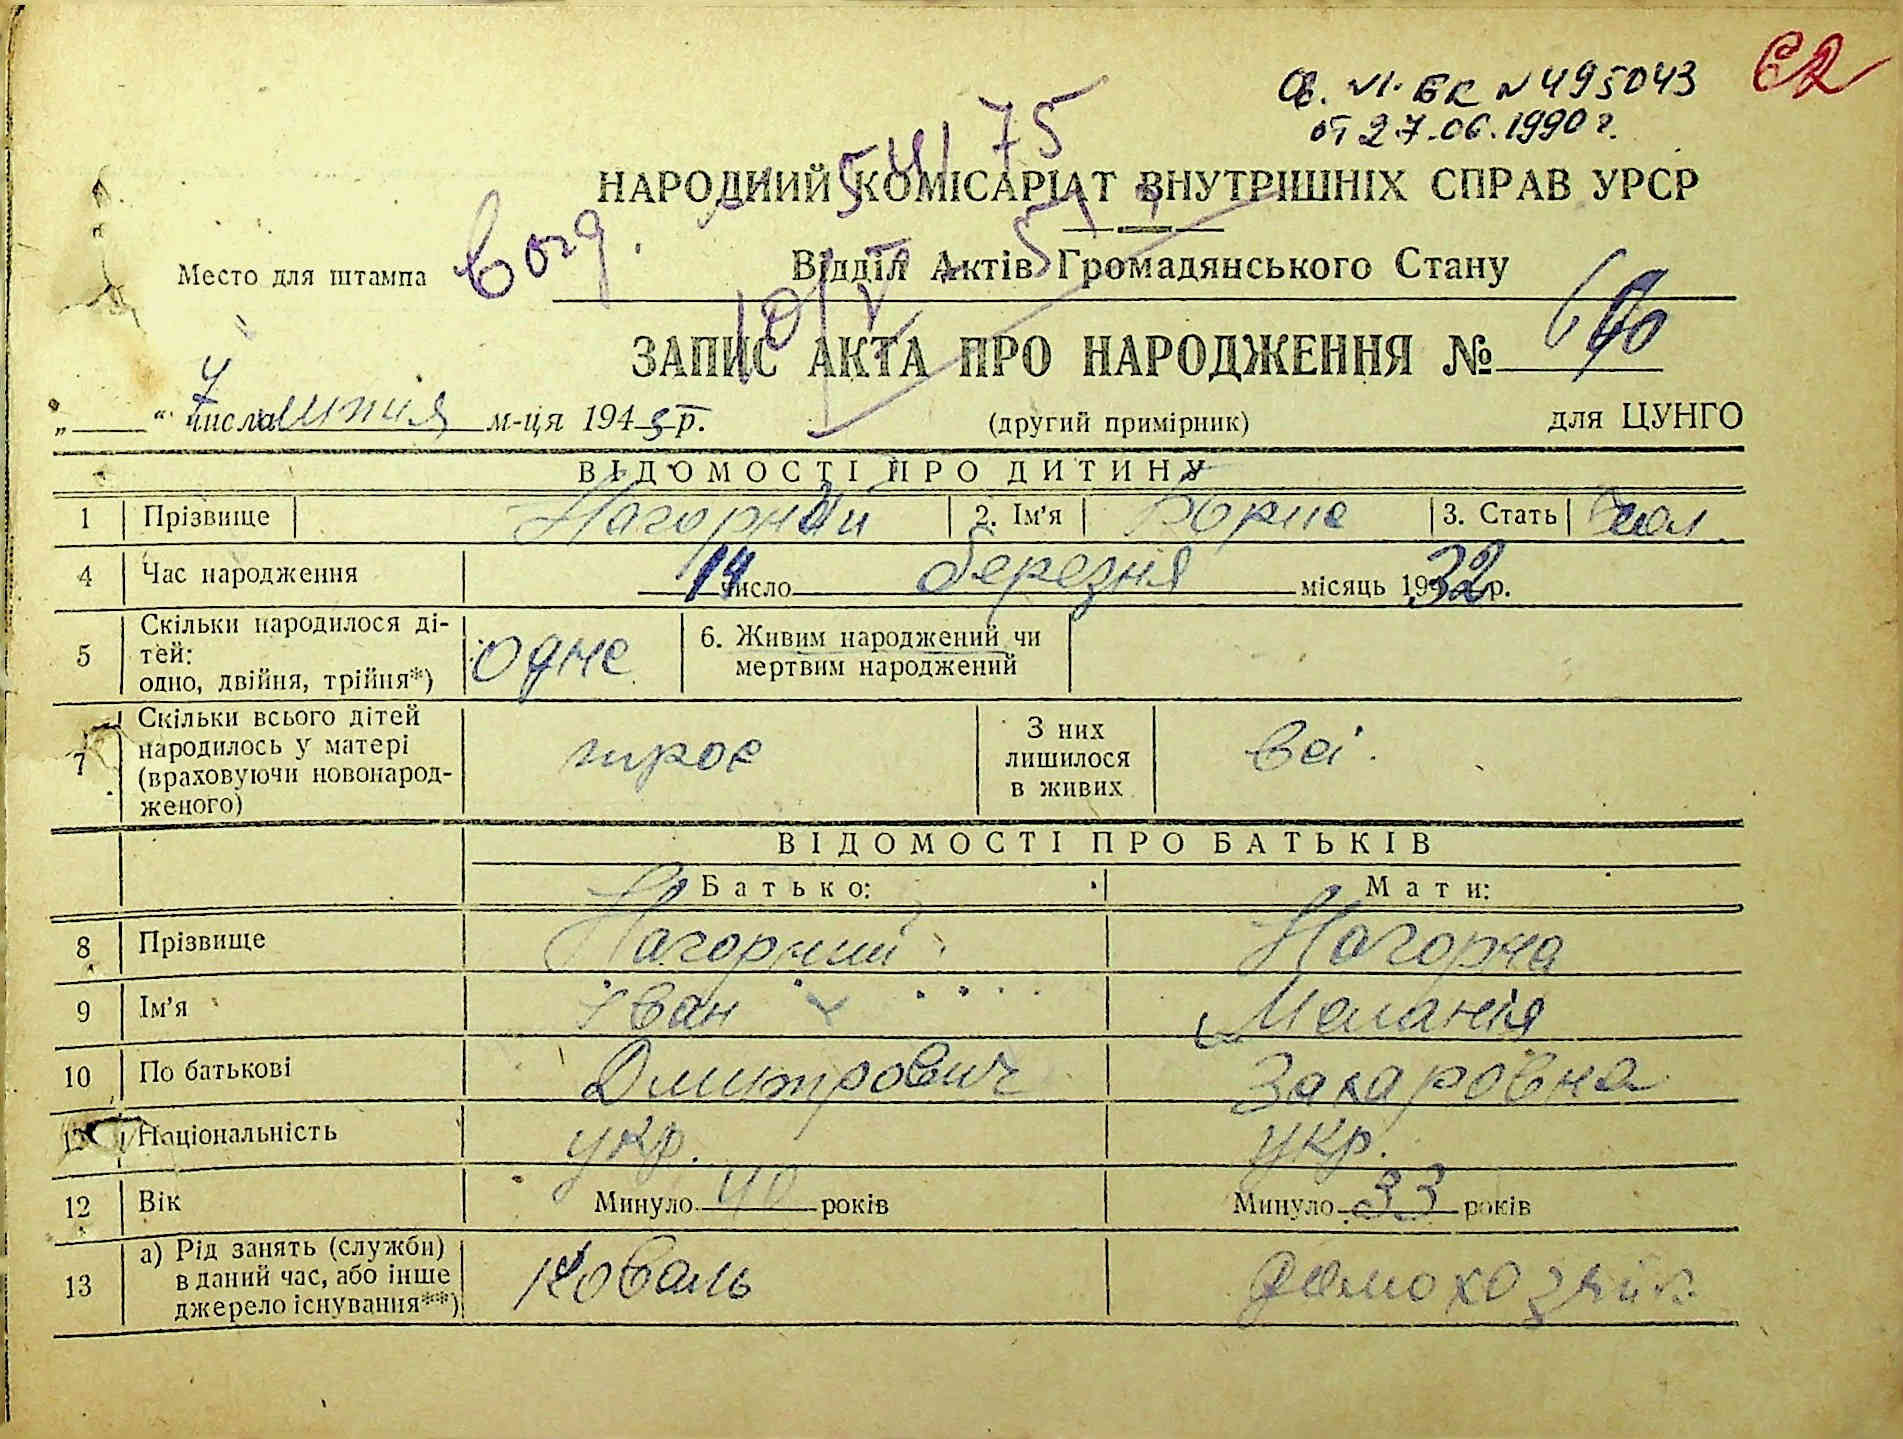 Св. VI-БК N 495043 62
от 27.06.1990 г.
НАРОДНИЙ КОМІСАРІАТ ВНУТРІШНІХ СПРАВ УРСР
Место для штампа
Відділ Актів Громадянського Стану
ЗАПИС АКТА ПРО НАРОДЖЕННЯ №
„ “ 7 числа липня м-ця 1945 р. (другий примірник) для ЦУНГО
ВІДОМОСТІ ПРО ДИТИНУ
1 Прізвище Нагорний 2. Ім’я Борис 3. Стать чол.
4 Час народження 14 число березня місяць 1932 р.
5 Скільки народилося ді-
тей:
одно, двійня, трійня*) одне 6. Живим народжений чи
мертвим народжений
7 Скільки всього дітей
народилось у матері
(враховуючи новонарод-
женого) троє З них
лишилося
в живих всі.
ВІДОМОСТІ ПРО БАТЬКІВ
Батько: Мати:
8 Прізвище Нагорний Нагорна
9 Ім’я Іван Меланія
10 По батькові Дмитрович Захаровна
11 Національність укр. укр.
12 Вік Минуло 40 років Минуло 33 років
13 а) Рід занять (служби)
в даний час, або інше
джерело існування**) Коваль домохозяйк.